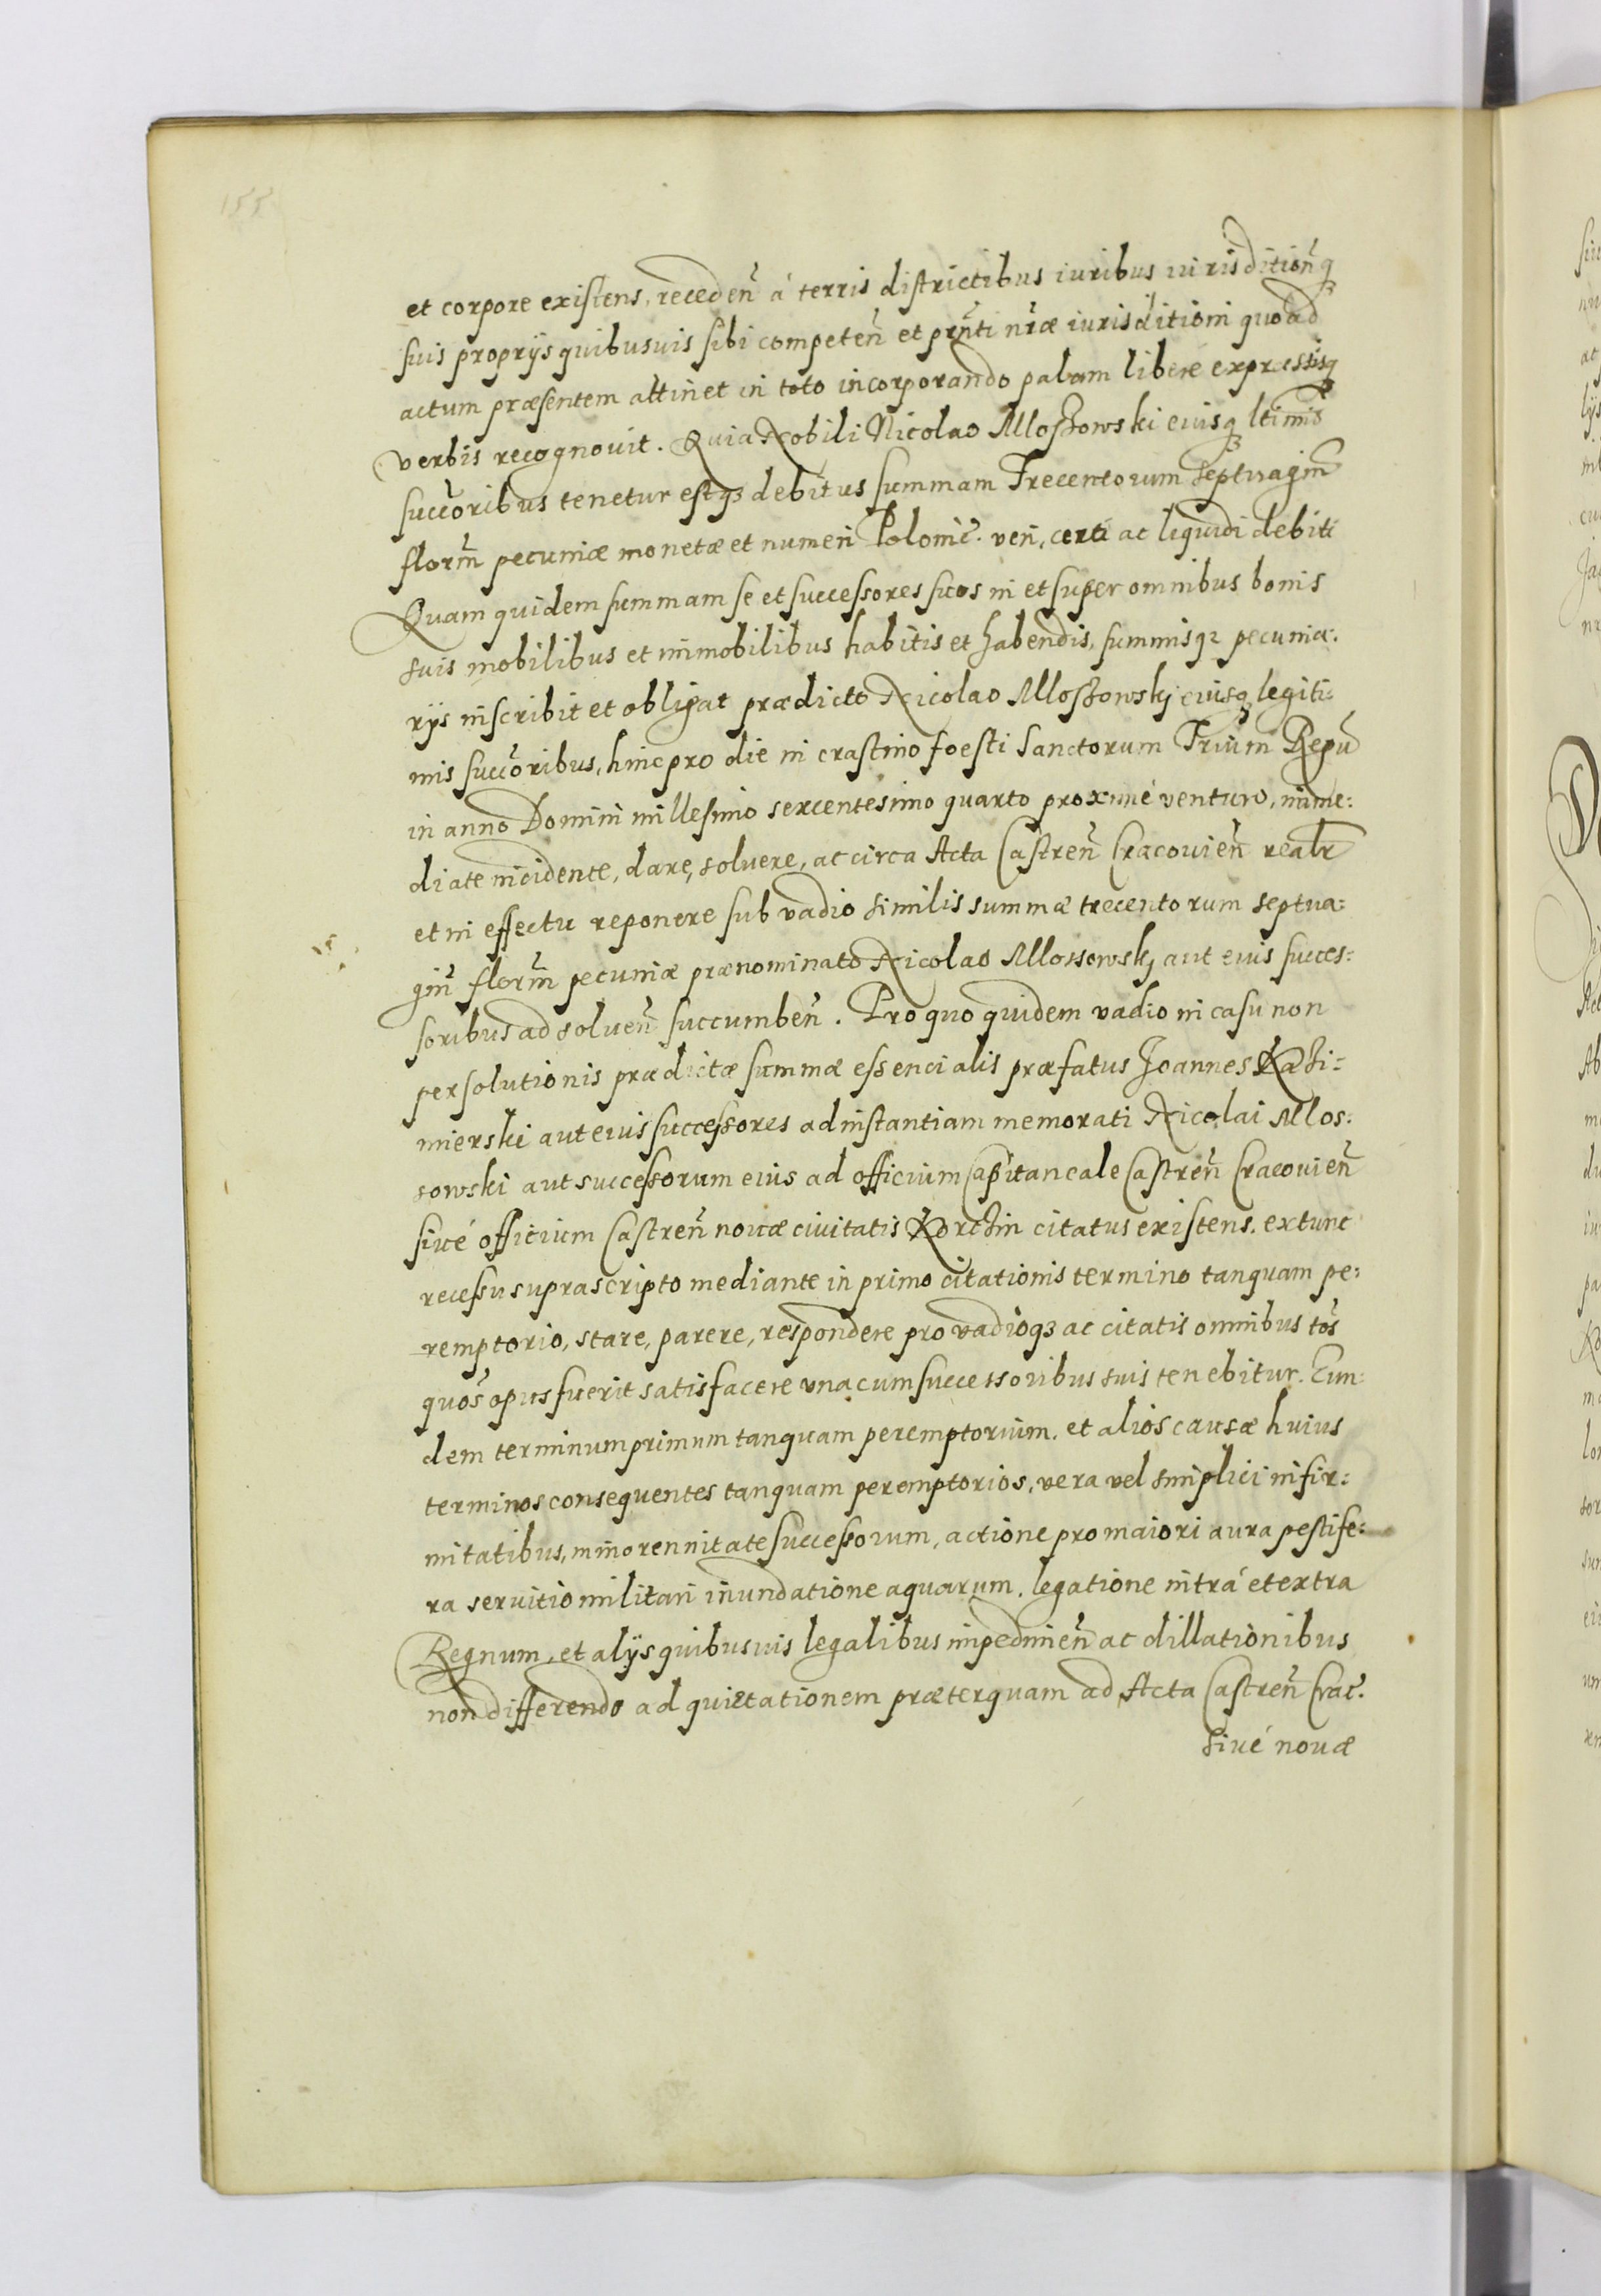 155
et corpore existens, receden̄ á terris districtibus iuribus iurisditioñq₃
suis proprijs quibusuis sibi competen̄ et pr̄nti nr̄æ iurisditioni quoad
actum præsentem attinet in toto incorporando palam liberé expressisq₃
verbis recognouit. Quia Nobili Nicolao Mloszowski eiusq₃ ltimis
succoribus tenetur estq₃ debitus summam Trecentorum septuagin̄
florm̄ pecuniæ monetæ et numeri Polonic̄. ven, certi ac liquidi debiti
Quam quidem summam se et successores suos in et super omnibus bonis
suis mobilibus et immobilibus habitis et habendis, summisq₃ pecunia:
rijs inscribit et obligat prædicto Nicolao Mloszowskj eiusq₃ legiti:
mis succoribus, hinc pro die in crastino foesti Sanctorum Trium Regū
in anno Domini millesimo sexcentesimo quarto proximé venturo, imme:
diate incidente, dare, soluere, ac circa Acta Castren̄ Cracouien̄ realr̄
et in effectu reponere sub vadio similis summæ trecentorum septua:
gin̄ florm̄ pecuniæ prænominato Nicolao Mlossowskj aut eius succes:
soribus ad soluen̄ succumben̄. Pro quo quidem vadio in casu non
persolutionis prædictæ summæ essencialis præfatus Joannes Kazi:
mierski aut eius successores ad instantiam memorati Nicolai Mlos:
sowski aut successorum eius ad officium Capitaneale Castren̄ Cracouien̄
siué officium Castren̄ nouæ ciuitatis Korczin citatus existens. extunc
recessu suprascripto mediante in primo citationis termino tanquam pe:
remptorio, stare, parere, respondere pro vadioq₃ ac citatis omnibus tōs
quōs opus fuerit satisfacere vna cum successoribus suis tenebitur. Eun:
dem terminum primum tanquam peremptorium. et alios causæ huius
terminos consequentes tanquam peremptorios, vera vel simplici infir:
mitatibus, minorennitate successorum, actione pro maiori aura pestife:
ra seruitio militari inundatione aquarum. legatione intrá et extra
Regnum, et alijs quibusuis legalibus impedimen̄ ac dillationibus
non differendo ad quietationem præterquam ad Acta Castren̄ Crac̄.
siué nouæ